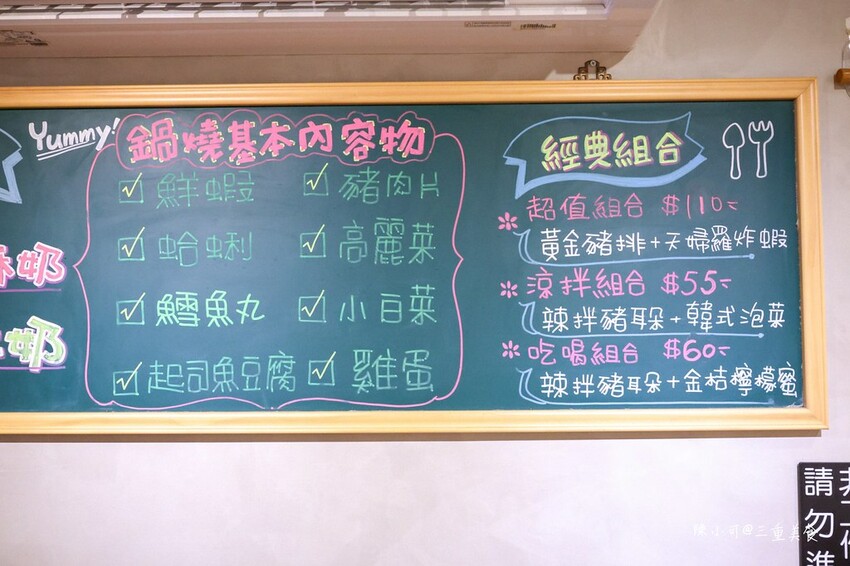 Yummy!
鍋燒基本內容物
鮮蝦
豬肉片
蛤蜊
高麗菜
鱈魚丸
小白菜
起司魚豆腐
雞蛋
奶
奶
經典組合
超值組合 $110-
黃金豬排+天婦羅炸蝦
涼拌組合 $55-
辣拌豬耳朵+韓式泡菜
吃喝組合 $60-
辣拌豬耳朵+金桔檸檬蜜
請勿進
陳小可@三重美食